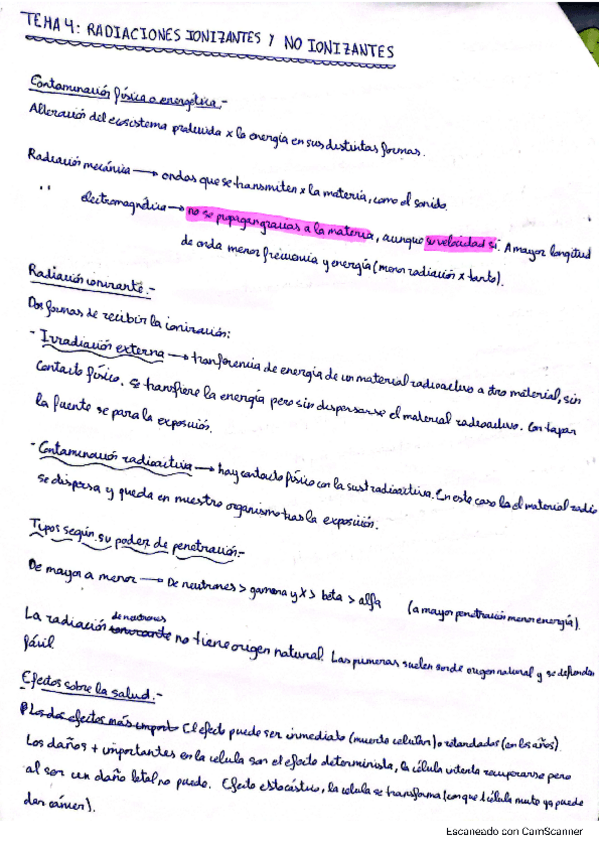 TEMA 4: RADIACIONES IONIZANTES Y NO IONIZANTES
Contaminación física o energética.-
Alteración del ecosistema producida x la energía en sus distintas formas.
Radiación mecánica → ondas que se transmiten x la materia, como el sonido.
" electromagnética → no se propagan gracias a la materia, aunque su velocidad sí. A mayor longitud
de onda menor frecuencia y energía (menor radiación x tanto).
Radiación ionizante.-
Dos formas de recibir la ionización:
- Irradiación externa → tranferencia de energía de un material radioactivo a otro material, sin
contacto físico. Se transfiere la energía pero sin dispersarse el material radioactivo. Con tapar
la fuente se para la exposición.
- Contaminación radiactiva → hay contacto físico con la sust radioactiva. En este caso la el material radio
se dispersa y queda en nuestro organismo tras la exposición.
Tipos según su poder de penetración.-
De mayor a menor → De neutrones > gamma y X > beta > alfa (a mayor penetración menor energía).
La radiación de neutrones no tiene origen natural. Las primeras suelen ser de origen natural y se defienden
fácil
Efectos sobre la salud.-
Los dos efectos más import El efecto puede ser inmediato (muerte celular) o retardado (en los años).
Los daños + importantes en la celula son el efecto determinista, la célula intenta recuperarse pero
al ser un daño letal no puede. Efecto estocástico, la celula se transforma (con que 1 célula mute ya puede
dar cáncer).
Escaneado con CamScanner